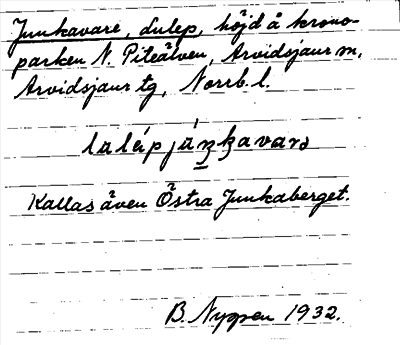 Junkavare, Lulep, höjd å krono-
parken N. Piteälven, Arvidsjaur sn,
Arvidsjaur tg, Norrb. l.
Kallas även Östra Junkaberget.
B. Nygren 1932.